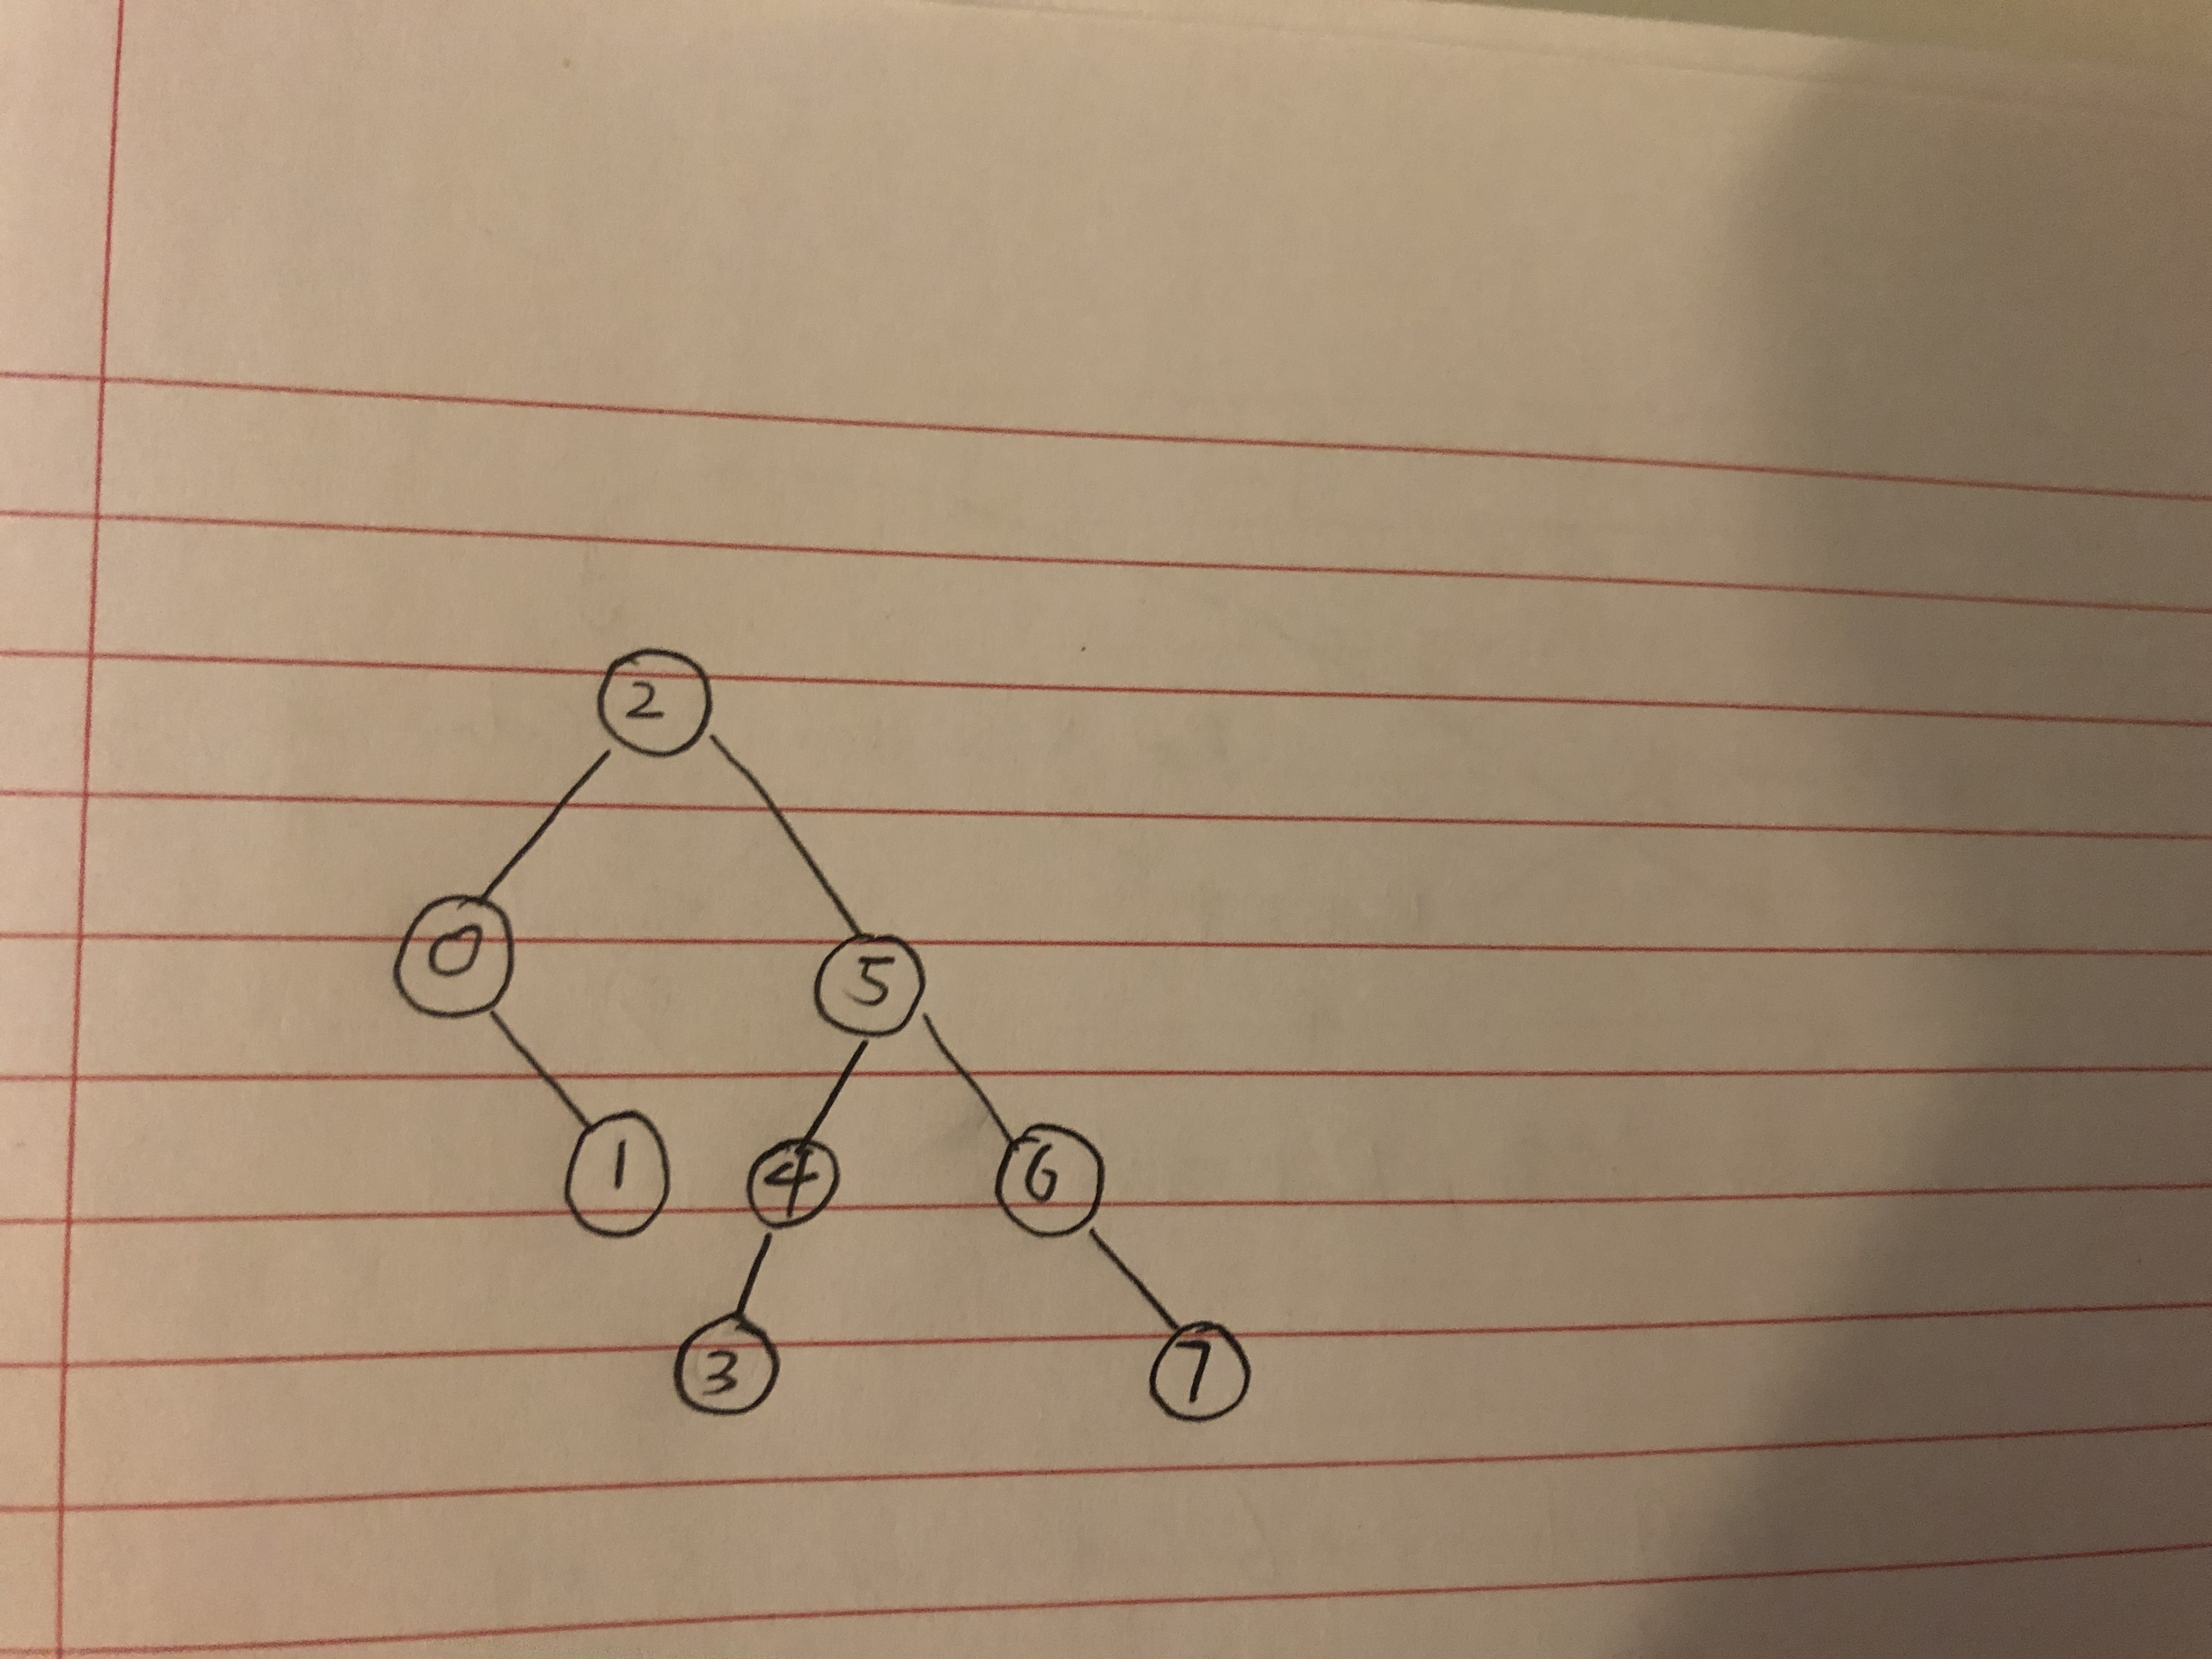 2
0 5
1 4 6
3 7